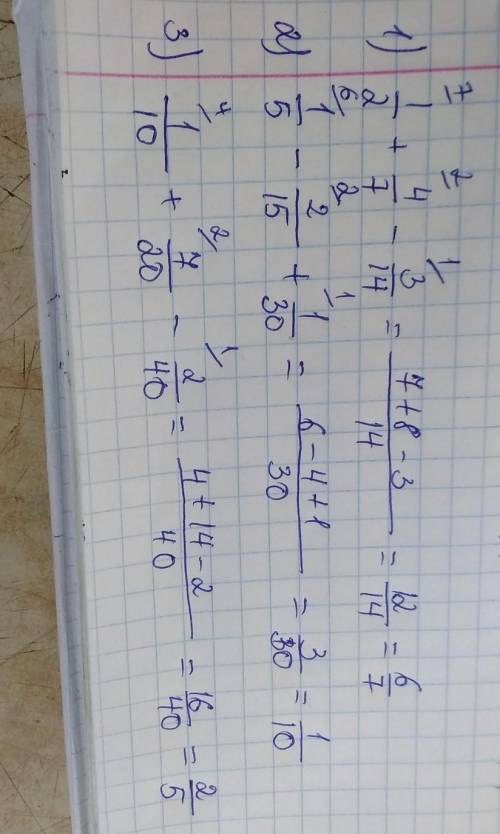 1) 1/2 + 4/7 - 3/14 = (7+8-3)/14 = 12/14 = 6/7
2) 1/5 - 2/15 + 1/30 = (6-4+1)/30 = 3/30 = 1/10
3) 1/10 + 7/20 - 2/40 = (4+14-2)/40 = 16/40 = 2/5